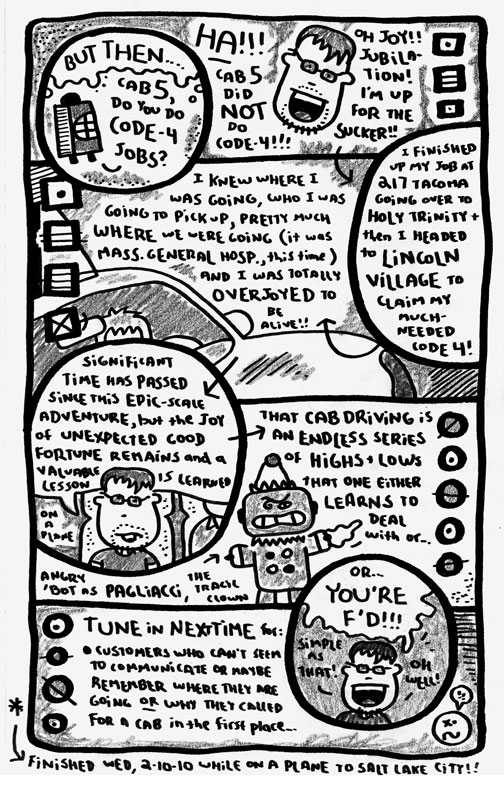 BUT THEN....
CAB 5,
DO YOU DO
CODE-4
JOBS?
HA!!!
CAB 5
DID
NOT
DO
CODE-4!!!
OH JOY!!
JUBILA-
TION!
I'M UP
FOR THE
SUCKER!!
I FINISHED
UP MY JOB AT
217 TACOMA
GOING OVER TO
HOLY TRINITY +
then I HEADED
to LINCOLN
VILLAGE TO
CLAIM MY
MUCH-
NEEDED
CODE 4!
I KNEW WHERE I
WAS GOING, WHO I WAS
GOING TO PICK UP, PRETTY MUCH
WHERE WE WERE GOING (it WAS
MASS. GENERAL HOSP., this time)
AND I WAS TOTALLY
OVERJOYED TO
BE
ALIVE!!
SIGNIFICANT
TIME HAS PASSED
SINCE THIS EPIC-SCALE
ADVENTURE, but the JOY
OF UNEXPECTED GOOD
FORTUNE REMAINS and a
VALUABLE
LESSON IS LEARNED
ON
A
PLANE
THAT CAB DRIVING IS
AN ENDLESS SERIES
OF HIGHS + LOWS
THAT ONE EITHER
LEARNS TO
DEAL
with or...
ANGRY
'BOT AS PAGLIACCI, THE
TRAGIC
CLOWN
OR...
YOU'RE
F'D!!!
SIMPLE
AS
THAT!
OH
WELL!
TUNE in NEXT TIME for:
CUSTOMERS WHO CAN'T SEEM
TO COMMUNICATE OR MAYBE
REMEMBER WHERE THEY ARE
GOING OR WHY THEY CALLED
FOR A CAB in the first place...
* FINISHED WED, 2-10-10 WHILE ON A PLANE TO SALT LAKE CITY!!